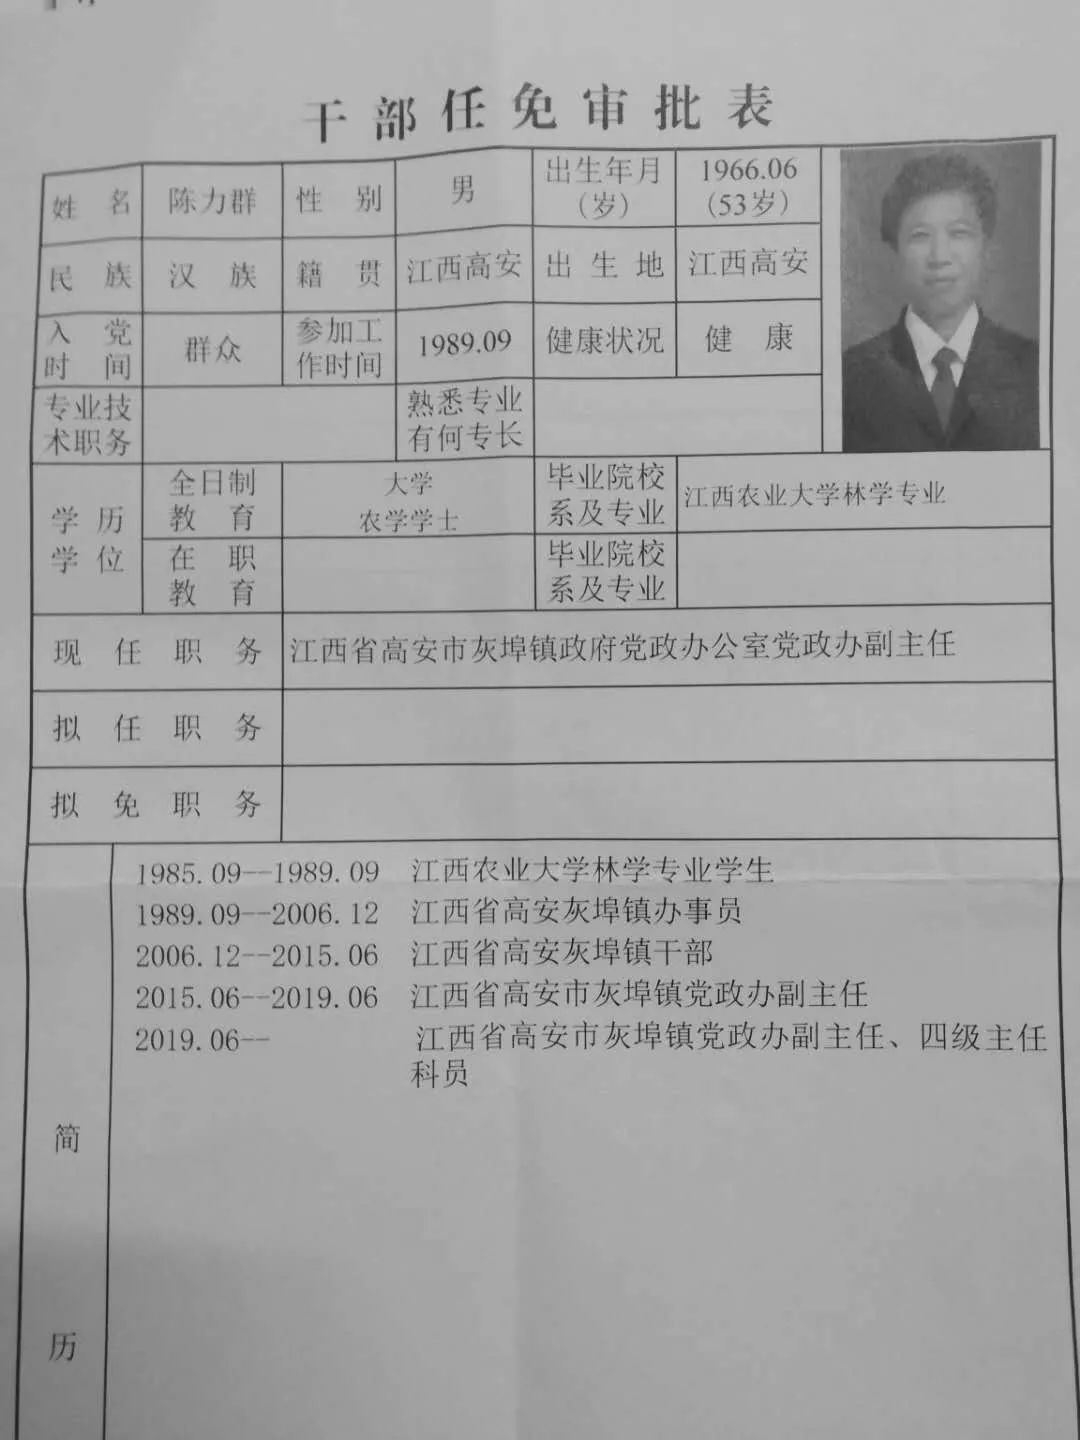 干部任免审批表
姓名 陈力群 性别 男 出生年月（岁） 1966.06（53岁）
民族 汉族 籍贯 江西高安 出生地 江西高安
入党时间 群众 参加工作时间 1989.09 健康状况 健康
专业技术职务 熟悉专业有何专长
学历学位 全日制教育 大学 农学学士 毕业院校系及专业 江西农业大学林学专业
在职教育 毕业院校系及专业
现任职务 江西省高安市灰埠镇政府党政办公室党政办副主任
拟任职务
拟免职务
简历
1985.09--1989.09 江西农业大学林学专业学生
1989.09--2006.12 江西省高安灰埠镇办事员
2006.12--2015.06 江西省高安灰埠镇干部
2015.06--2019.06 江西省高安市灰埠镇党政办副主任
2019.06-- 江西省高安市灰埠镇党政办副主任、四级主任
科员